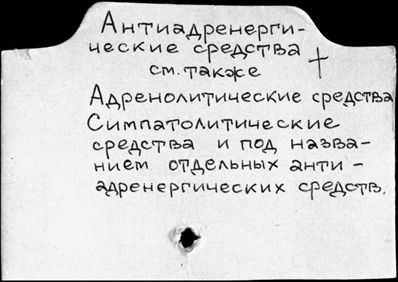 Антиадренерги-
ческие средства
см. также
Адренолитические средства
Симпатолитические
средства и под назва-
нием отдельных анти-
адренергических средств.